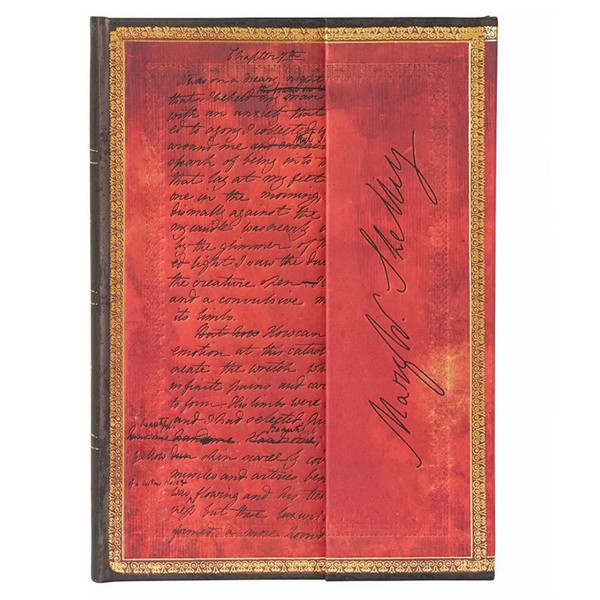 Chapter 7th
It was on a dreary night
that I beheld my man
with an anxiety that
ed to agony I collected
around me
spark of being into
that lay at my feet
one in the morning,
dismally against the
my candle was nearly
by the glimmer of
ed light I saw the du
the creature open
and a convulsive m
its limbs.
But how How can
emotion at this catast
create the wretch wh
infinite pains and car
to form. His limbs were
and I had selected his
handsome Handsome
yellow skin scarcely co
muscles and arteries ben
was flowing and his tee
ness but these luxuri
formed a more horri
Mary W. Shelley